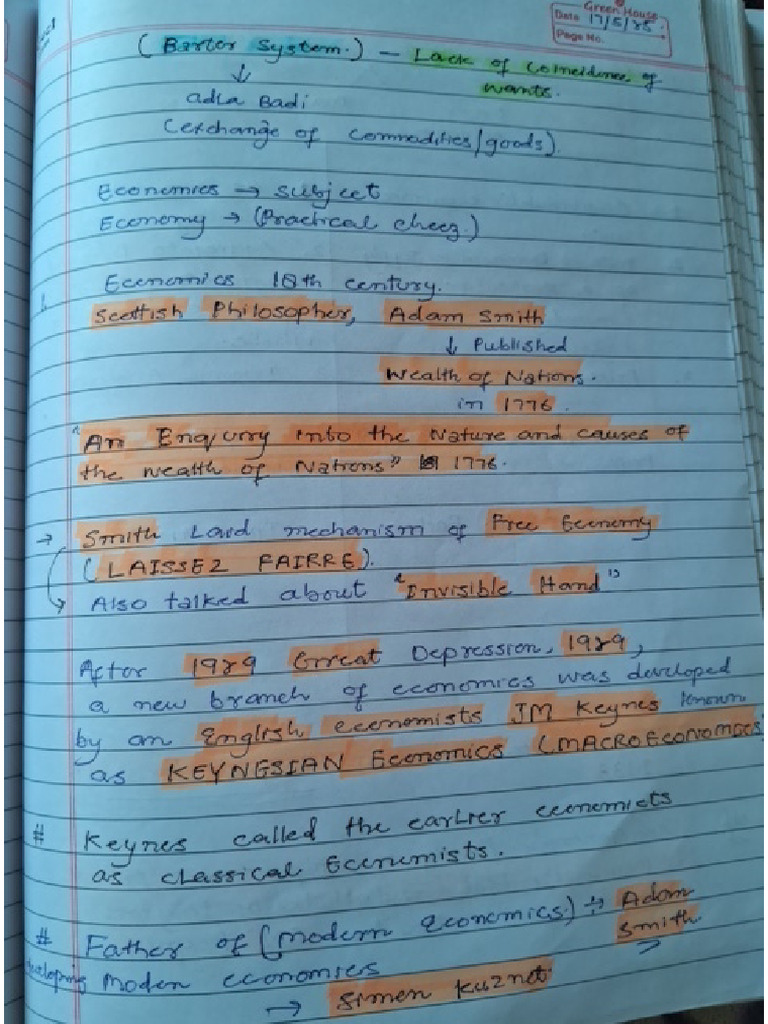 Green House
Date 17/5/25
Page No.
(Barter System.) - Lack of Coincidence of
wants.
↓
adla Badi
(exchange of commodities/goods).
Economics → subject
Economy → (Practical cheez.)
Economics 18th century.
Scottish Philosopher, Adam Smith
↓ Published
Wealth of Nations.
in 1776.
"An Enquiry into the Nature and causes of
the wealth of Nations" 1776.
→ Smith Laid mechanism of Free Economy
(LAISSEZ FAIRRE).
Also talked about "Invisible Hand"
After 1929 Great Depression, 1929,
a new branch of economics was developed
by an English economists JM Keynes known
as KEYNESIAN Economics (MACROECONOMICS)
# Keynes called the earlier economists
as classical Economists.
# Father of (modern economics) ÷ Adam
Smith.
developing Moden economies
→ Simen Kuznet